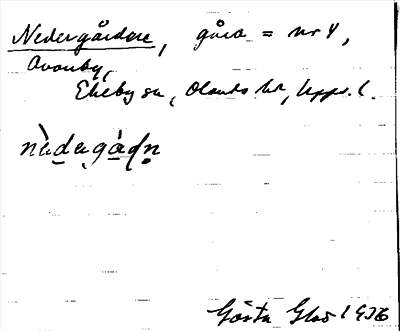 Nedergården, gård = nr 4,
Ovanby,
Ekeby sn, Olands hd, Upps. l.
nèdegådn
Gösta 1936